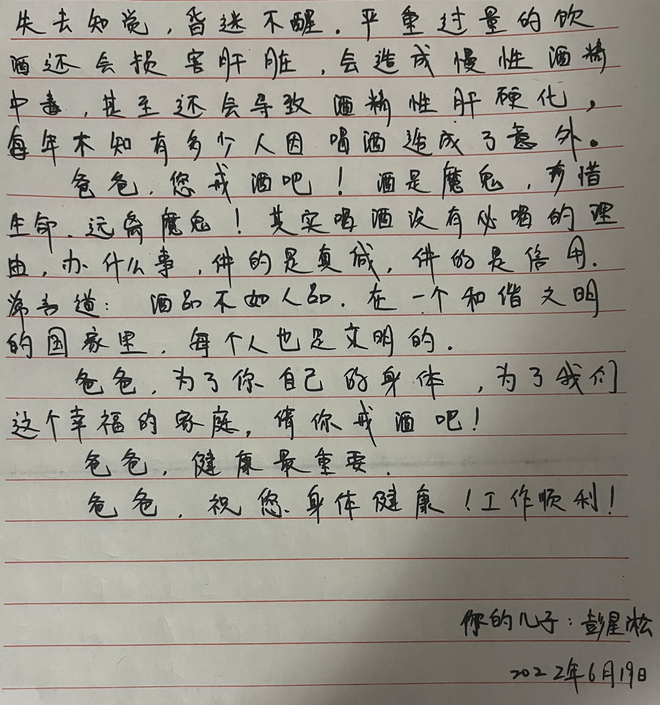 失去知觉，昏迷不醒．严重过量的饮
酒还会损害肝脏，会造成慢性酒精
中毒，甚至还会导致酒精性肝硬化，
每年木知有多少人因喝酒造成了意外。
爸爸，您戒酒吧！酒是魔鬼，珍惜
生命、远离魔鬼！其实喝酒没有必喝的理
由，办什么事，伴的是真诚，伴的是信用．
常言道：酒品不如人品．在一个和谐文明
的国家里，每个人也是文明的．
爸爸，为了你自己的身体，为了我们
这个幸福的家庭，请你戒酒吧！
爸爸，健康最重要．
爸爸，祝您身体健康！工作顺利！
你的儿子：彭星淞
2022年6月19日